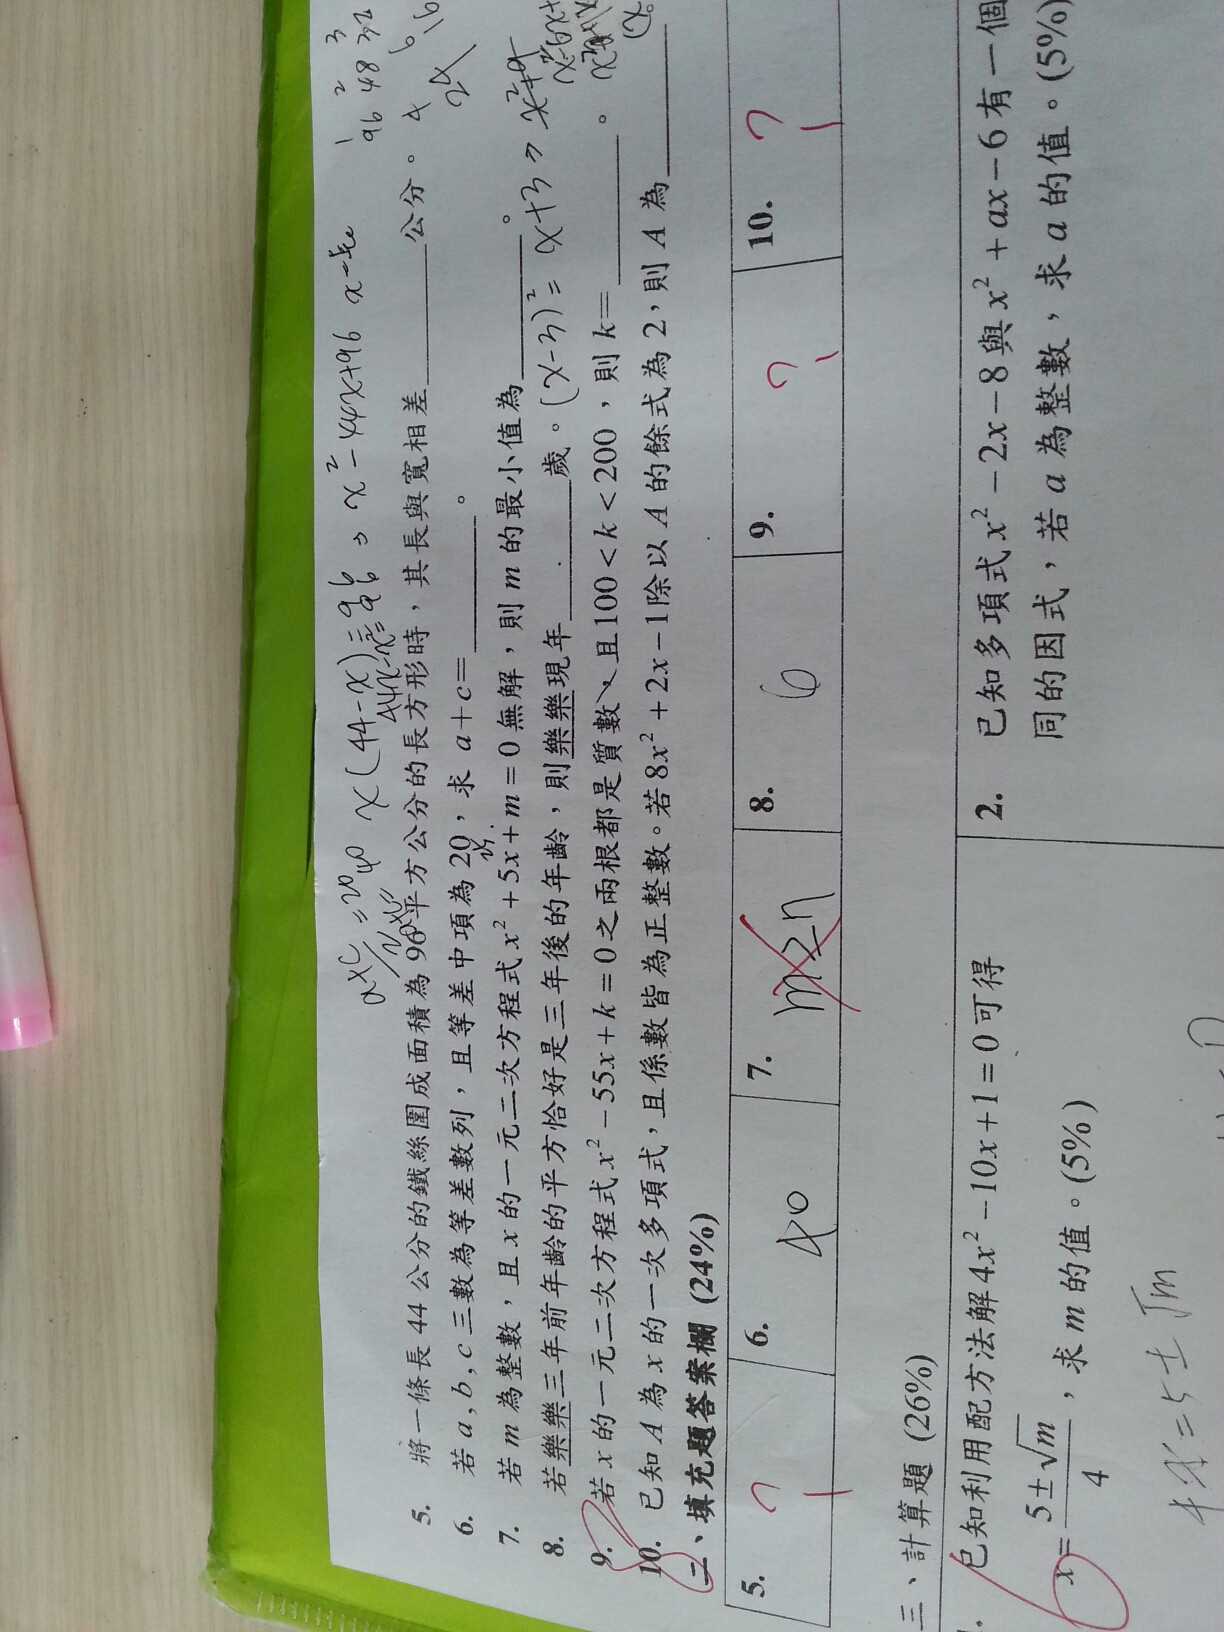 1 2 3
96 48 32
4 6
24 16
a×c/2 = 20
x(44-x)=96
⇒ x² - 44x+96
5. 將一條長 44 公分的鐵絲圍成面積為 96 平方公分的長方形時，其長與寬相差______公分。
6. 若 a , b , c 三數為等差數列，且等差中項為 20，求 a + c = ______。
7. 若 m 為整數，且 x 的一元二次方程式 x² + 5x + m = 0 無解，則 m 的最小值為______。
8. 若樂樂三年前年齡的平方恰好是三年後的年齡，則樂樂現年______歲。
(x-3)² = x+3
9. 若 x 的一元二次方程式 x² − 55x + k = 0 之兩根都是質數，且 100 < k < 200，則 k = ______。
10. 已知 A 為 x 的一次多項式，且係數皆為正整數。若 8x² + 2x − 1 除以 A 的餘式為 2，則 A 為______
二、填充題答案欄 (24%)
5. ? 6. 40 7. m≥n 8. 6 9. ? 10. ?
三、計算題 (26%)
已知利用配方法解 4x² − 10x + 1 = 0 可得
x = (5 ± √m)/4，求 m 的值。(5%)
4x = 5 ± √m
2. 已知多項式 x² − 2x − 8 與 x² + ax − 6 有一個
同的因式，若 a 為整數，求 a 的值。(5%)